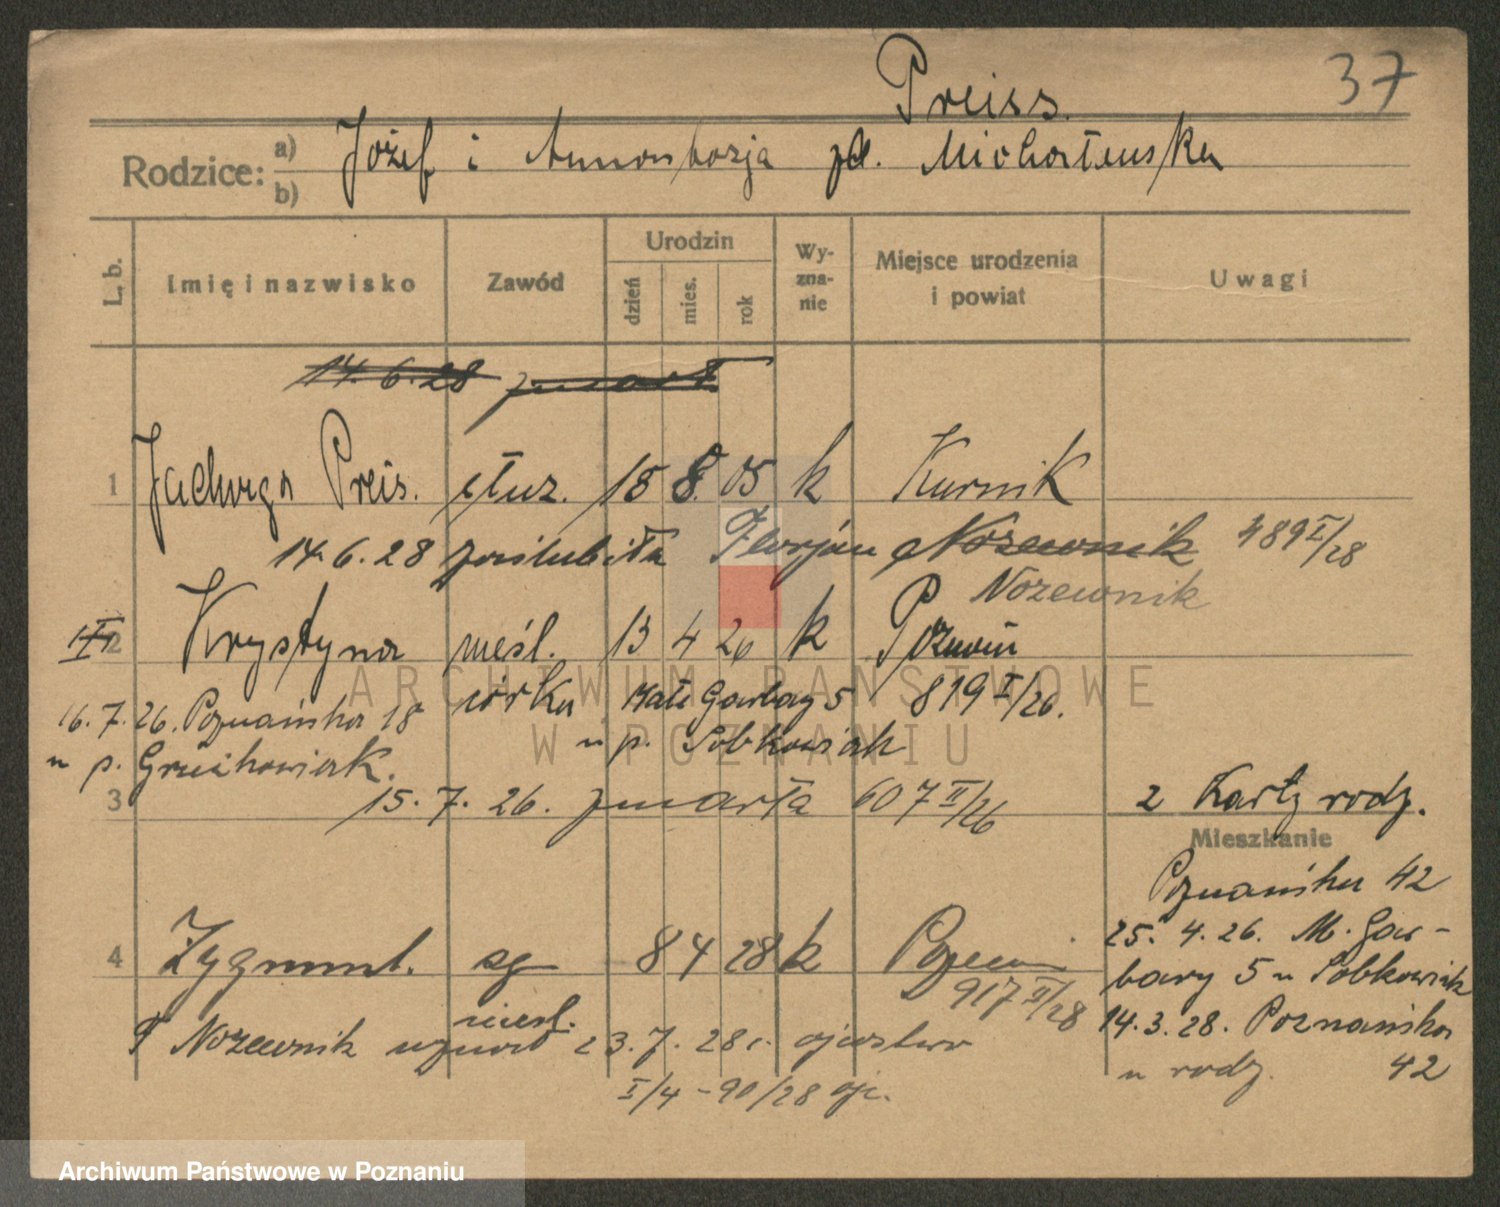 37
Preiss.
Rodzice: a) b) Józef i pd. Michałeuska
L. b. Imię i nazwisko Zawód Urodzin dzień mies. rok Wy-zna-nie Miejsce urodzenia i powiat Uwagi
14.6.28 zmarł
1 Jadwiga Preis. służ. 18 8. 05 k Kurnik
14.6.28 zaślubiła Florjan Nożewnik 489 I/28
Nożewnik
2 Krystyna nieśl. 13 4 26 k Poznań
córka Małe Garbary 5 819 I/26.
16.7.26. Poznańska 18
u p. Sobkowiak
u p.
3 15.7.26. zmarła 607 II/26
2 Karty rodz.
Mieszkanie
Poznańska 42
25.4.26. M. Gar-
bary 5 u Sobkowiak
14.3.28. Poznańska
u rodz. 42
4 Zygmunt. 8 4 28 k Poznań
917 II/28
nieśl.
F Nożewnik uznał 23.7.28 r. ojcostwo
I/4-90/28 ojc.
ARCHIWUM PAŃSTWOWE
W POZNANIU
Archiwum Państwowe w Poznaniu